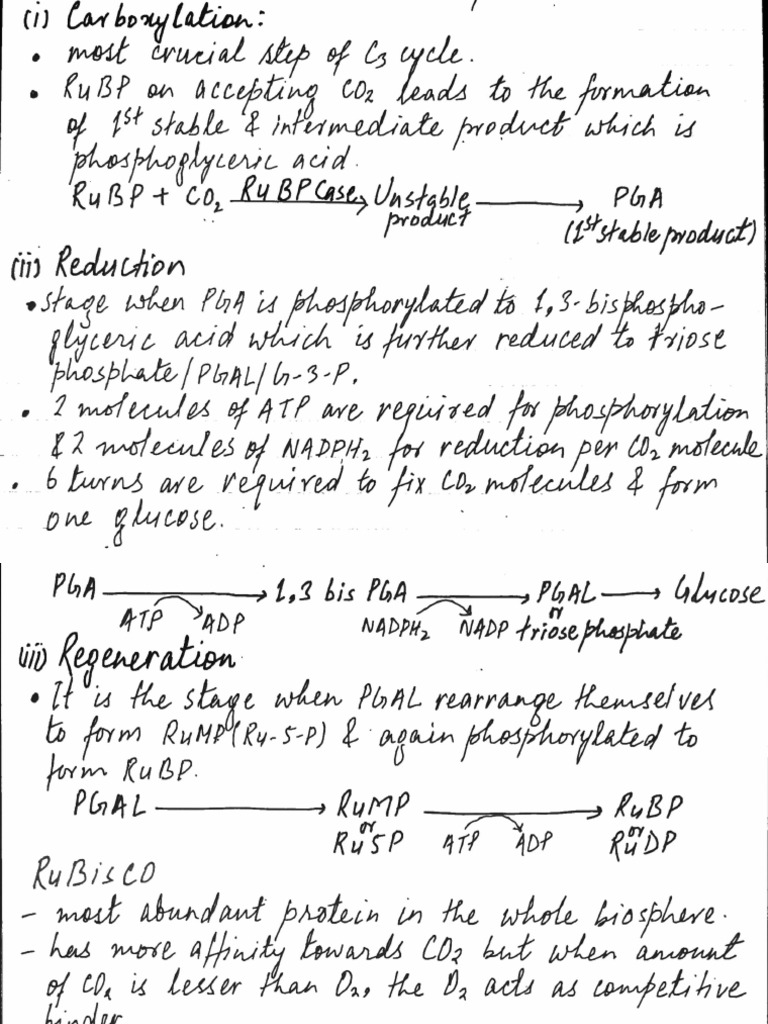 (i) Carboxylation:
• most crucial step of C₃ cycle.
• RuBP on accepting CO₂ leads to the formation
of 1st stable & intermediate product which is
phosphoglyceric acid.
RuBP + CO₂ RuBPCase Unstable product PGA
(1st stable product)
(ii) Reduction
• Stage when PGA is phosphorylated to 1,3-bisphospho-
glyceric acid which is further reduced to triose
phosphate/PGAL/G-3-P.
• 2 molecules of ATP are required for phosphorylation
& 2 molecules of NADPH₂ for reduction per CO₂ molecule
• 6 turns are required to fix CO₂ molecules & form
one glucose.
PGA → 1,3 bis PGA → PGAL → Glucose
ATP ADP NADPH₂ NADP or triose phosphate
(iii) Regeneration
• It is the stage when PGAL rearrange themselves
to form RuMP(Ru-5-P) & again phosphorylated to
form RuBP.
PGAL → RuMP → RuBP
or Ru5P ATP ADP or RuDP
RuBisCO
- most abundant protein in the whole biosphere.
- has more affinity towards CO₂ but when amount
of CO₂ is lesser than O₂, the O₂ acts as competitive
binder